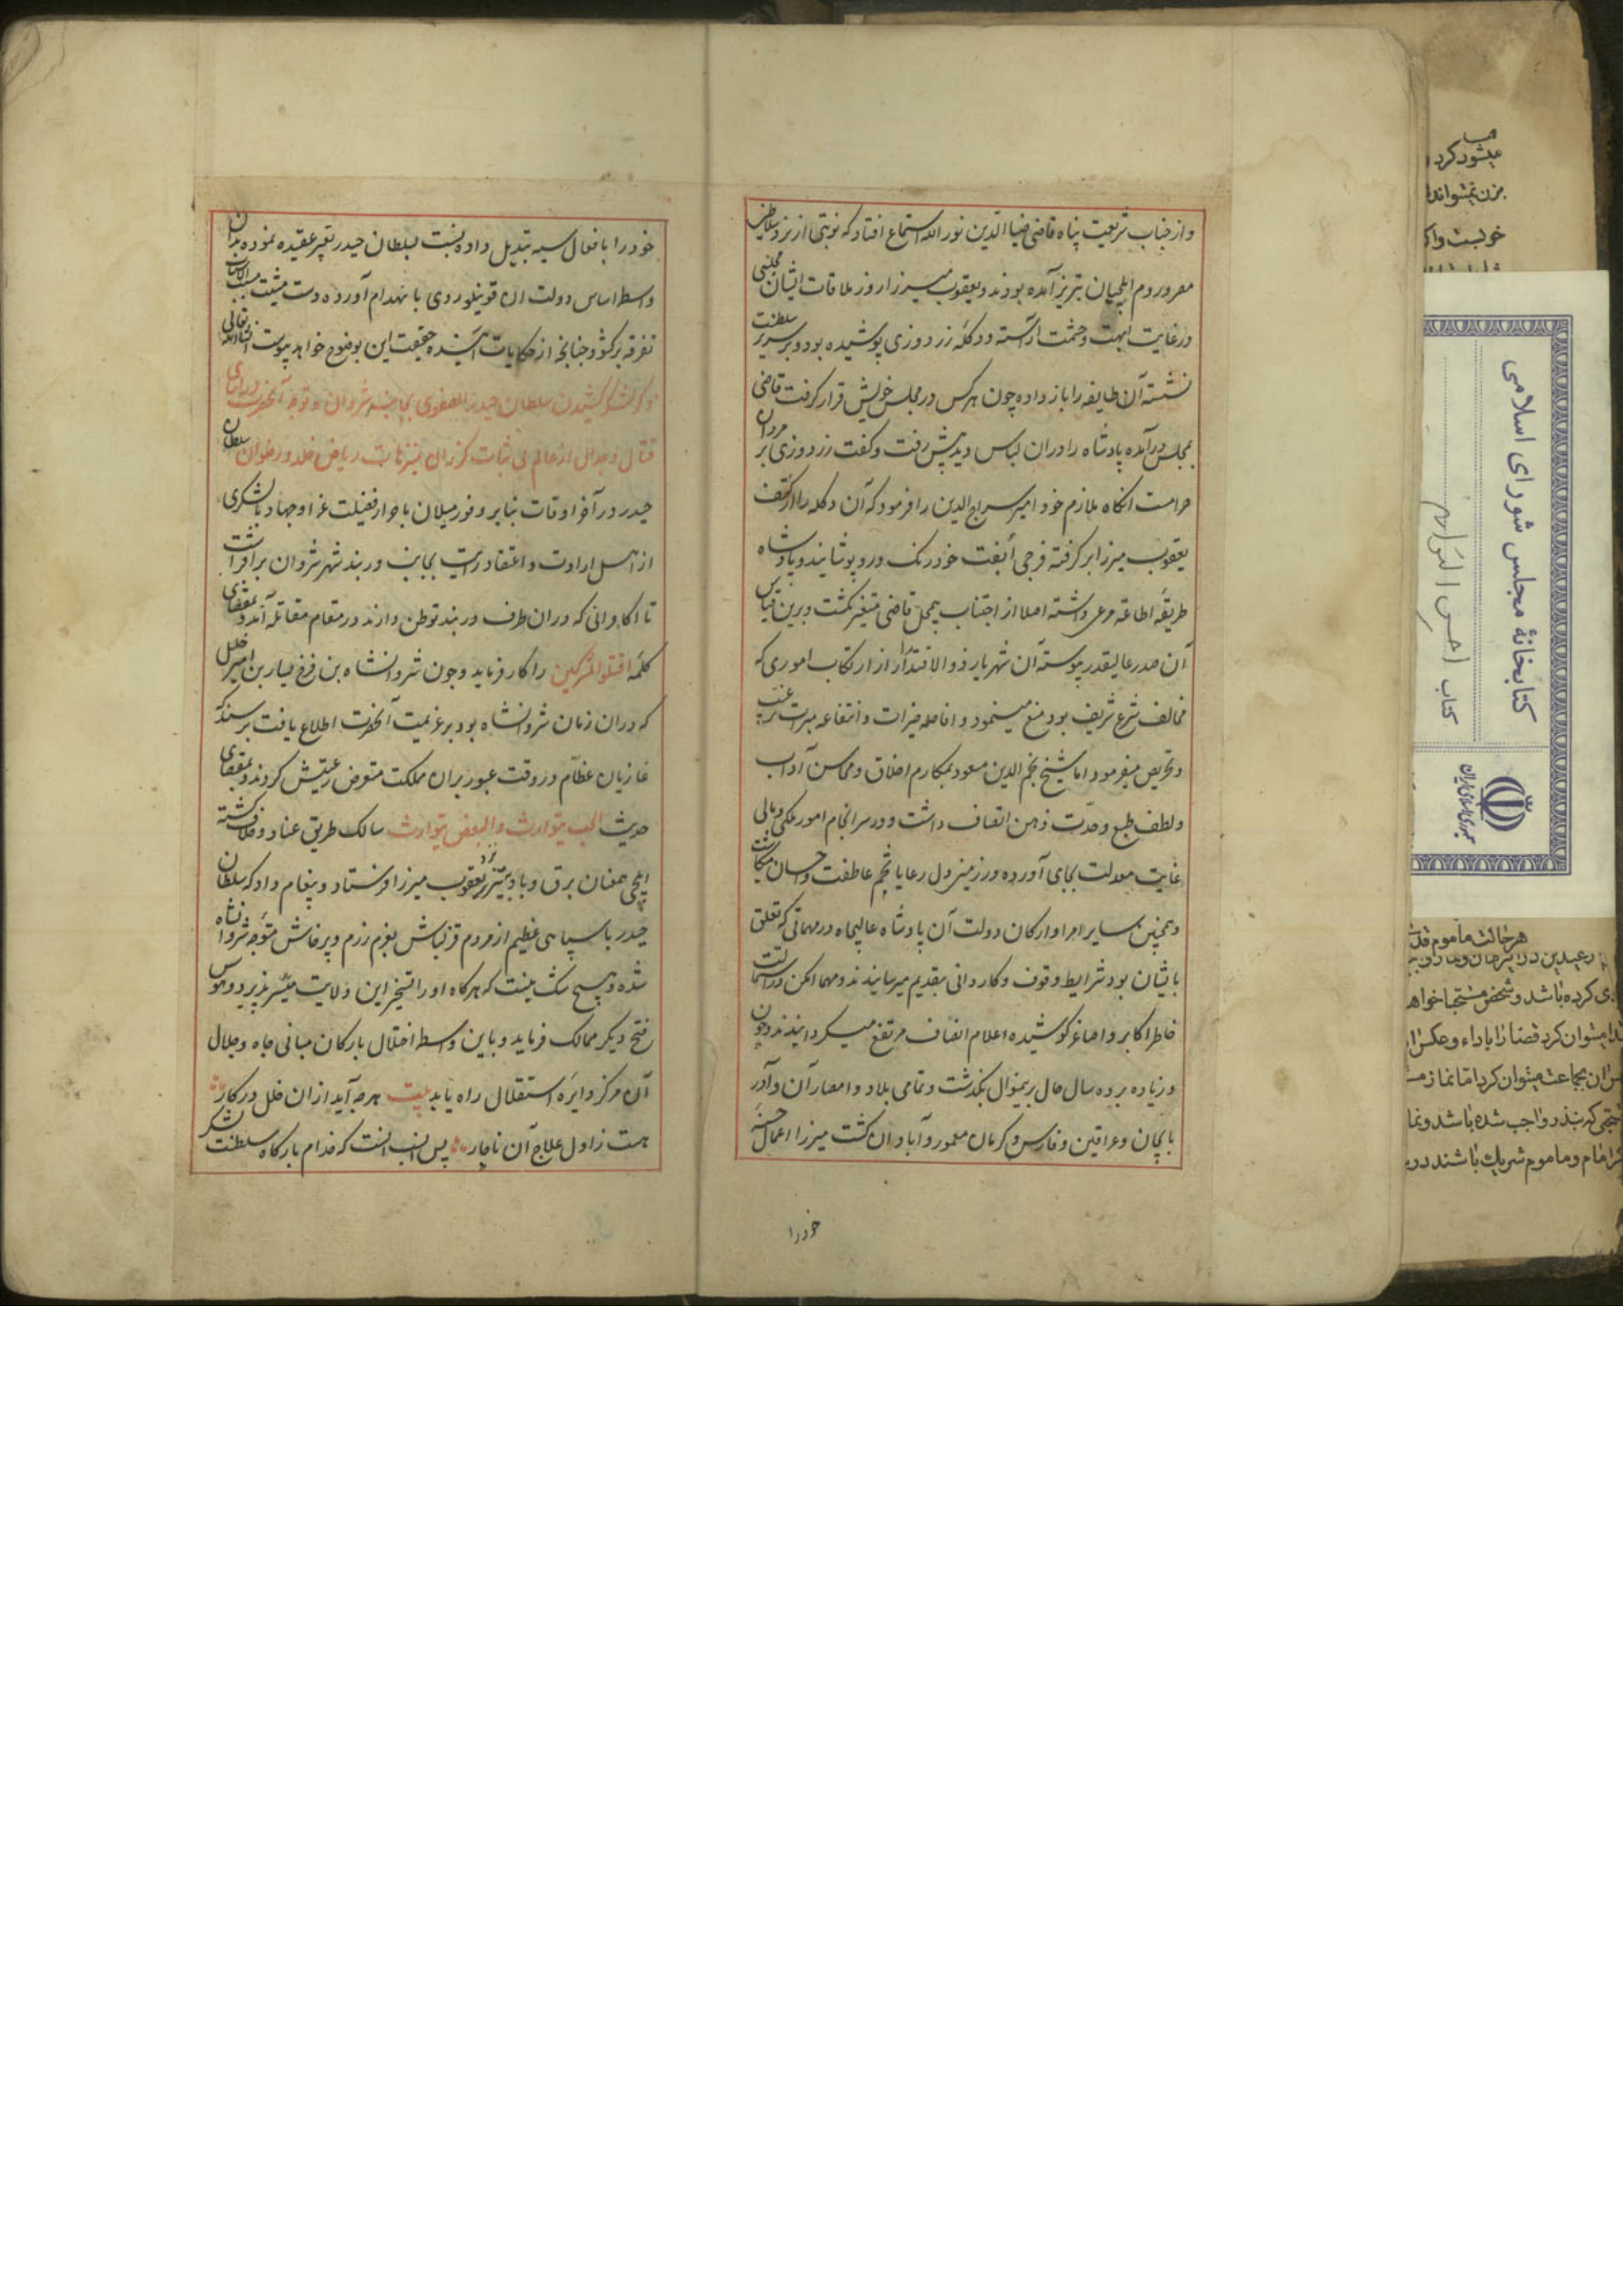 و از جناب شریعت پناه قاضی ضیاء الدین نور الله استماع افتاد که نوبتی از نزد سلاطین
مصر و روم ایلچیان بتبریز آمده بودند و یعقوب میرزا روز ملاقات ایشان مجلسی
در غایت ابهت و حشمت آراسته و دکله زردوزی پوشیده بود و بر سریر سلطنت
نشسته آن طایفه را بار داده چون هر کس در مجلس خویش قرار گرفت قاضی
بمجلس درآمده پادشاه را در ان لباس دید پیش رفت و گفت زردوزی بر مردان
حرامست آنگاه ملازم خود امیر سراج الدین را فرمود که آن دکله را از کتف
یعقوب میرزا بر گرفته فرجی آلفت خود رنگ در و پوشانید و پادشاه
طریقه اطاعه مرعی داشته اصلا از اجتناب بیمحل قاضی متغیر نگشت و برین قیاس
آن صدر عالیقدر پیوسته آن شهریار ذو الاقتدار از ارتکاب اموری که
مخالف شرع شریف بود منع مینمود و افاضه خیرات و اشاعه مبرات ترغیب
و تحریص میفرمود اما شیخ نجم الدین مسعود بمکارم اخلاق و محاسن آداب
و لطف طبع و حدت ذهن اتصاف داشت و در سرانجام امور ملکی و مالی
غایت معدلت بجای آورده در زمین دل رعایا تخم عاطفت و احسان میکاشت
و همچنین سایر امرا و ارکان دولت آن پادشاه عالیجاه در مهماتی که تعلق
بایشان بود شرایط وقوف و کاردانی بتقدیم میرسانیدند و مهما امکن در استمالت
خاطر اکابر و اصاغر کوشیده اعلام انصاف مرتفع میگردانیدند و چون
و زیاده بر ده سال حال برینموال بگذشت و تمامی بلاد و امصار آن و آذر
بایجان و عراقین و فارس و کرمان معمور و آبادان گشت میرزا اعمال حسنه
خود را
خود را بافعال سیه تبدیل داده نسبت بسلطان حیدر تغییر عقیده نموده بدان
واسطه اساس دولت ان قوینلو روی بانهدام آورده دست مشیت مسبب الاسباب
تفرقه برگشود چنانچه از حکایات آینده حقیقت این بوضوح خواهد پیوست انشاء الله تعالی
ذکر لشکر کشیدن سلطان حیدر الصفوی بجانب شروان و توجه آنحضرت در اثنای
قتال و جدال از عالم بی ثبات گذران بنزهات ریاض خلد و رضوان سلطان
حیدر در آخر اوقات بنابر وفور میلان باحراز فضیلت غزا و جهاد با لشکری
از اهل ارادت و اعتقاد رایت بجانب دربند شهر شروان برافراشت
تا با کافرانی که در ان طرف دربند توطن دارند در مقام مقاتله آمده بمقتضای
کلمه اقتلوا المشرکین را کار فرماید و چون شروانشاه بن فرخ یسار بن امیر خلیل
که در ان زمان شروانشاه بود بر عزیمت آنحضرت اطلاع یافت ترسید که
غازیان عظام در وقت عبور بر ان مملکت متعرض رعیتش گردند و بمقتضای
حدیث الحب یتوارث و البغض یتوارث سالک طریق عناد و خلاف گشته
ایلچی همعنان برق و باد بتبریز نزد یعقوب میرزا فرستاد و پیغام داد که سلطان
حیدر با سپاهی عظیم از مردم قزلباش بعزم رزم و پرخاش متوجه شروانشاه
شده و هیچ شک نیست که هرگاه او را تسخیر این ولایت میسر پذیرد هوس
فتح دیگر ممالک فرماید و باین واسطه اختلال بارکان مبانی جاه و جلال
آن مرکز دایره استقلال راه یابد بیت هر چه آید از ان خلل در کار
هست ز اول علاج آن ناچار پس انسب آنست که خدام بارگاه سلطنت لشکر
کتابخانهٔ مجلس شورای اسلامی
کتاب احسن التواریخ
جمهوری اسلامی ایران
میشود کرد
هر حالت ماموم